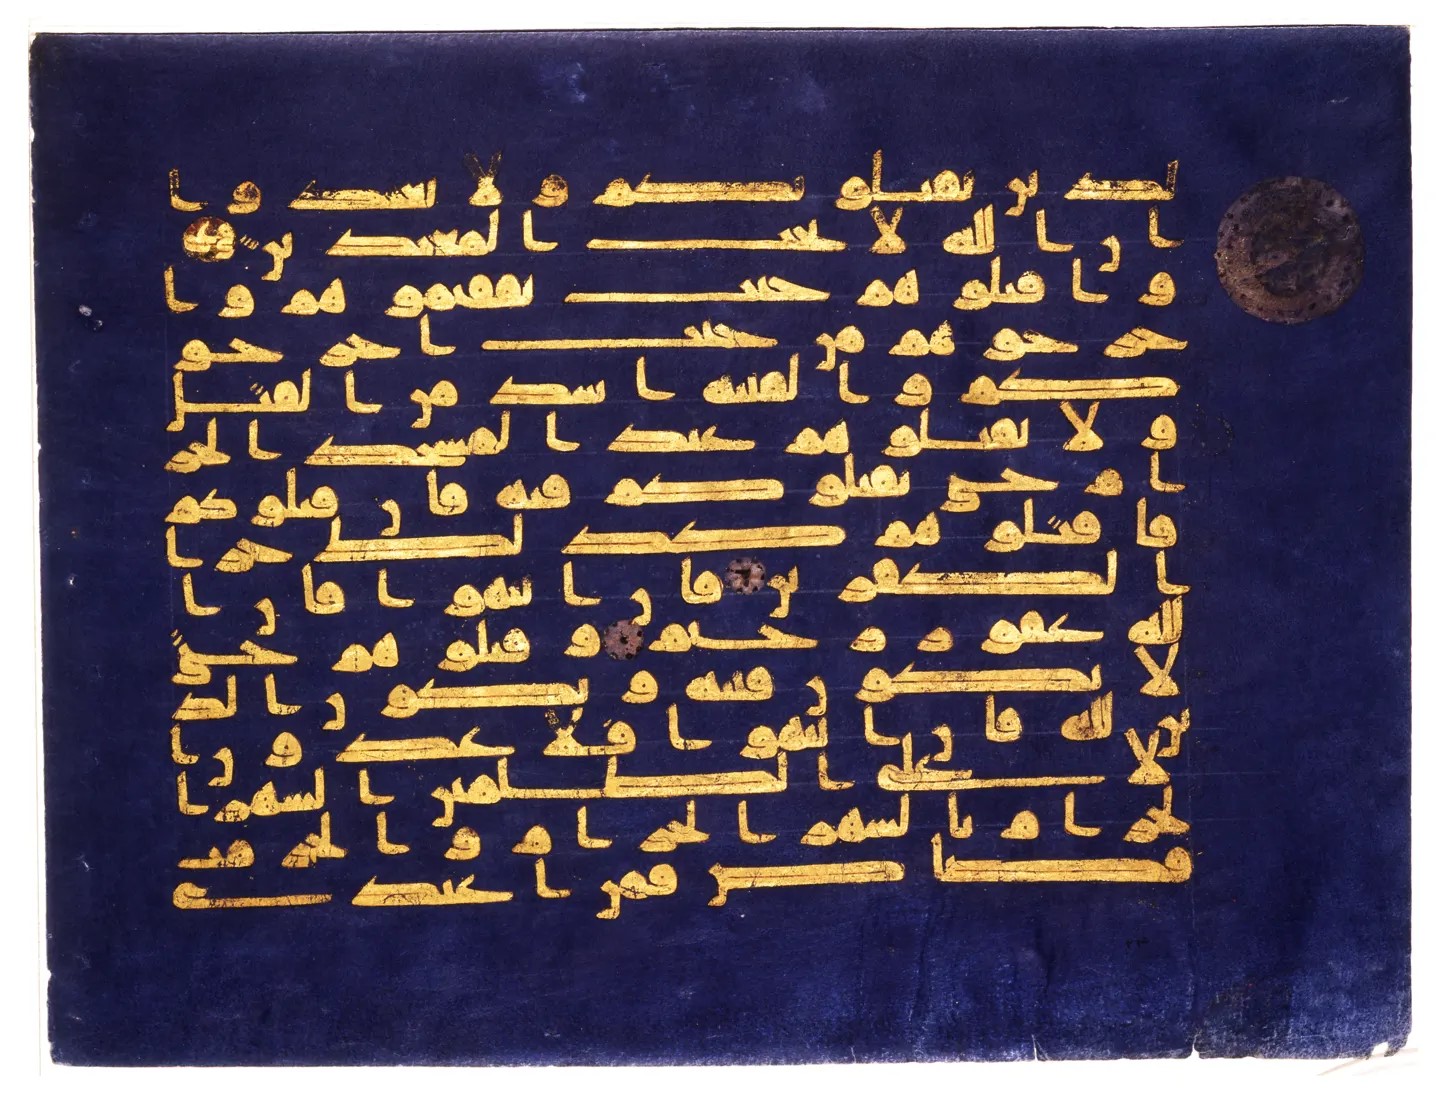 لذين يقتلونكم ولا تعتدوا
ان الله لا يحب المعتدين
واقتلوهم حيث ثقفتموهم وا
خرجوهم من حيث اخرجو
كم والفتنه اشد من القتل
ولا تقتلوهم عند المسجد الحر
ام حتى يقتلوكم فيه فان قتلوكم
فاقتلوهم كذلك جزا
الكفرين فان انتهوا فان ا
لله غفور رحيم وقتلوهم حتى
لا تكون فتنه ويكون الد
ين لله فان انتهوا فلا عدون ا
لا على الظلمين الشهر ا
لحرام بالشهر الحرام والحرمت
قصاص فمن اعتدى